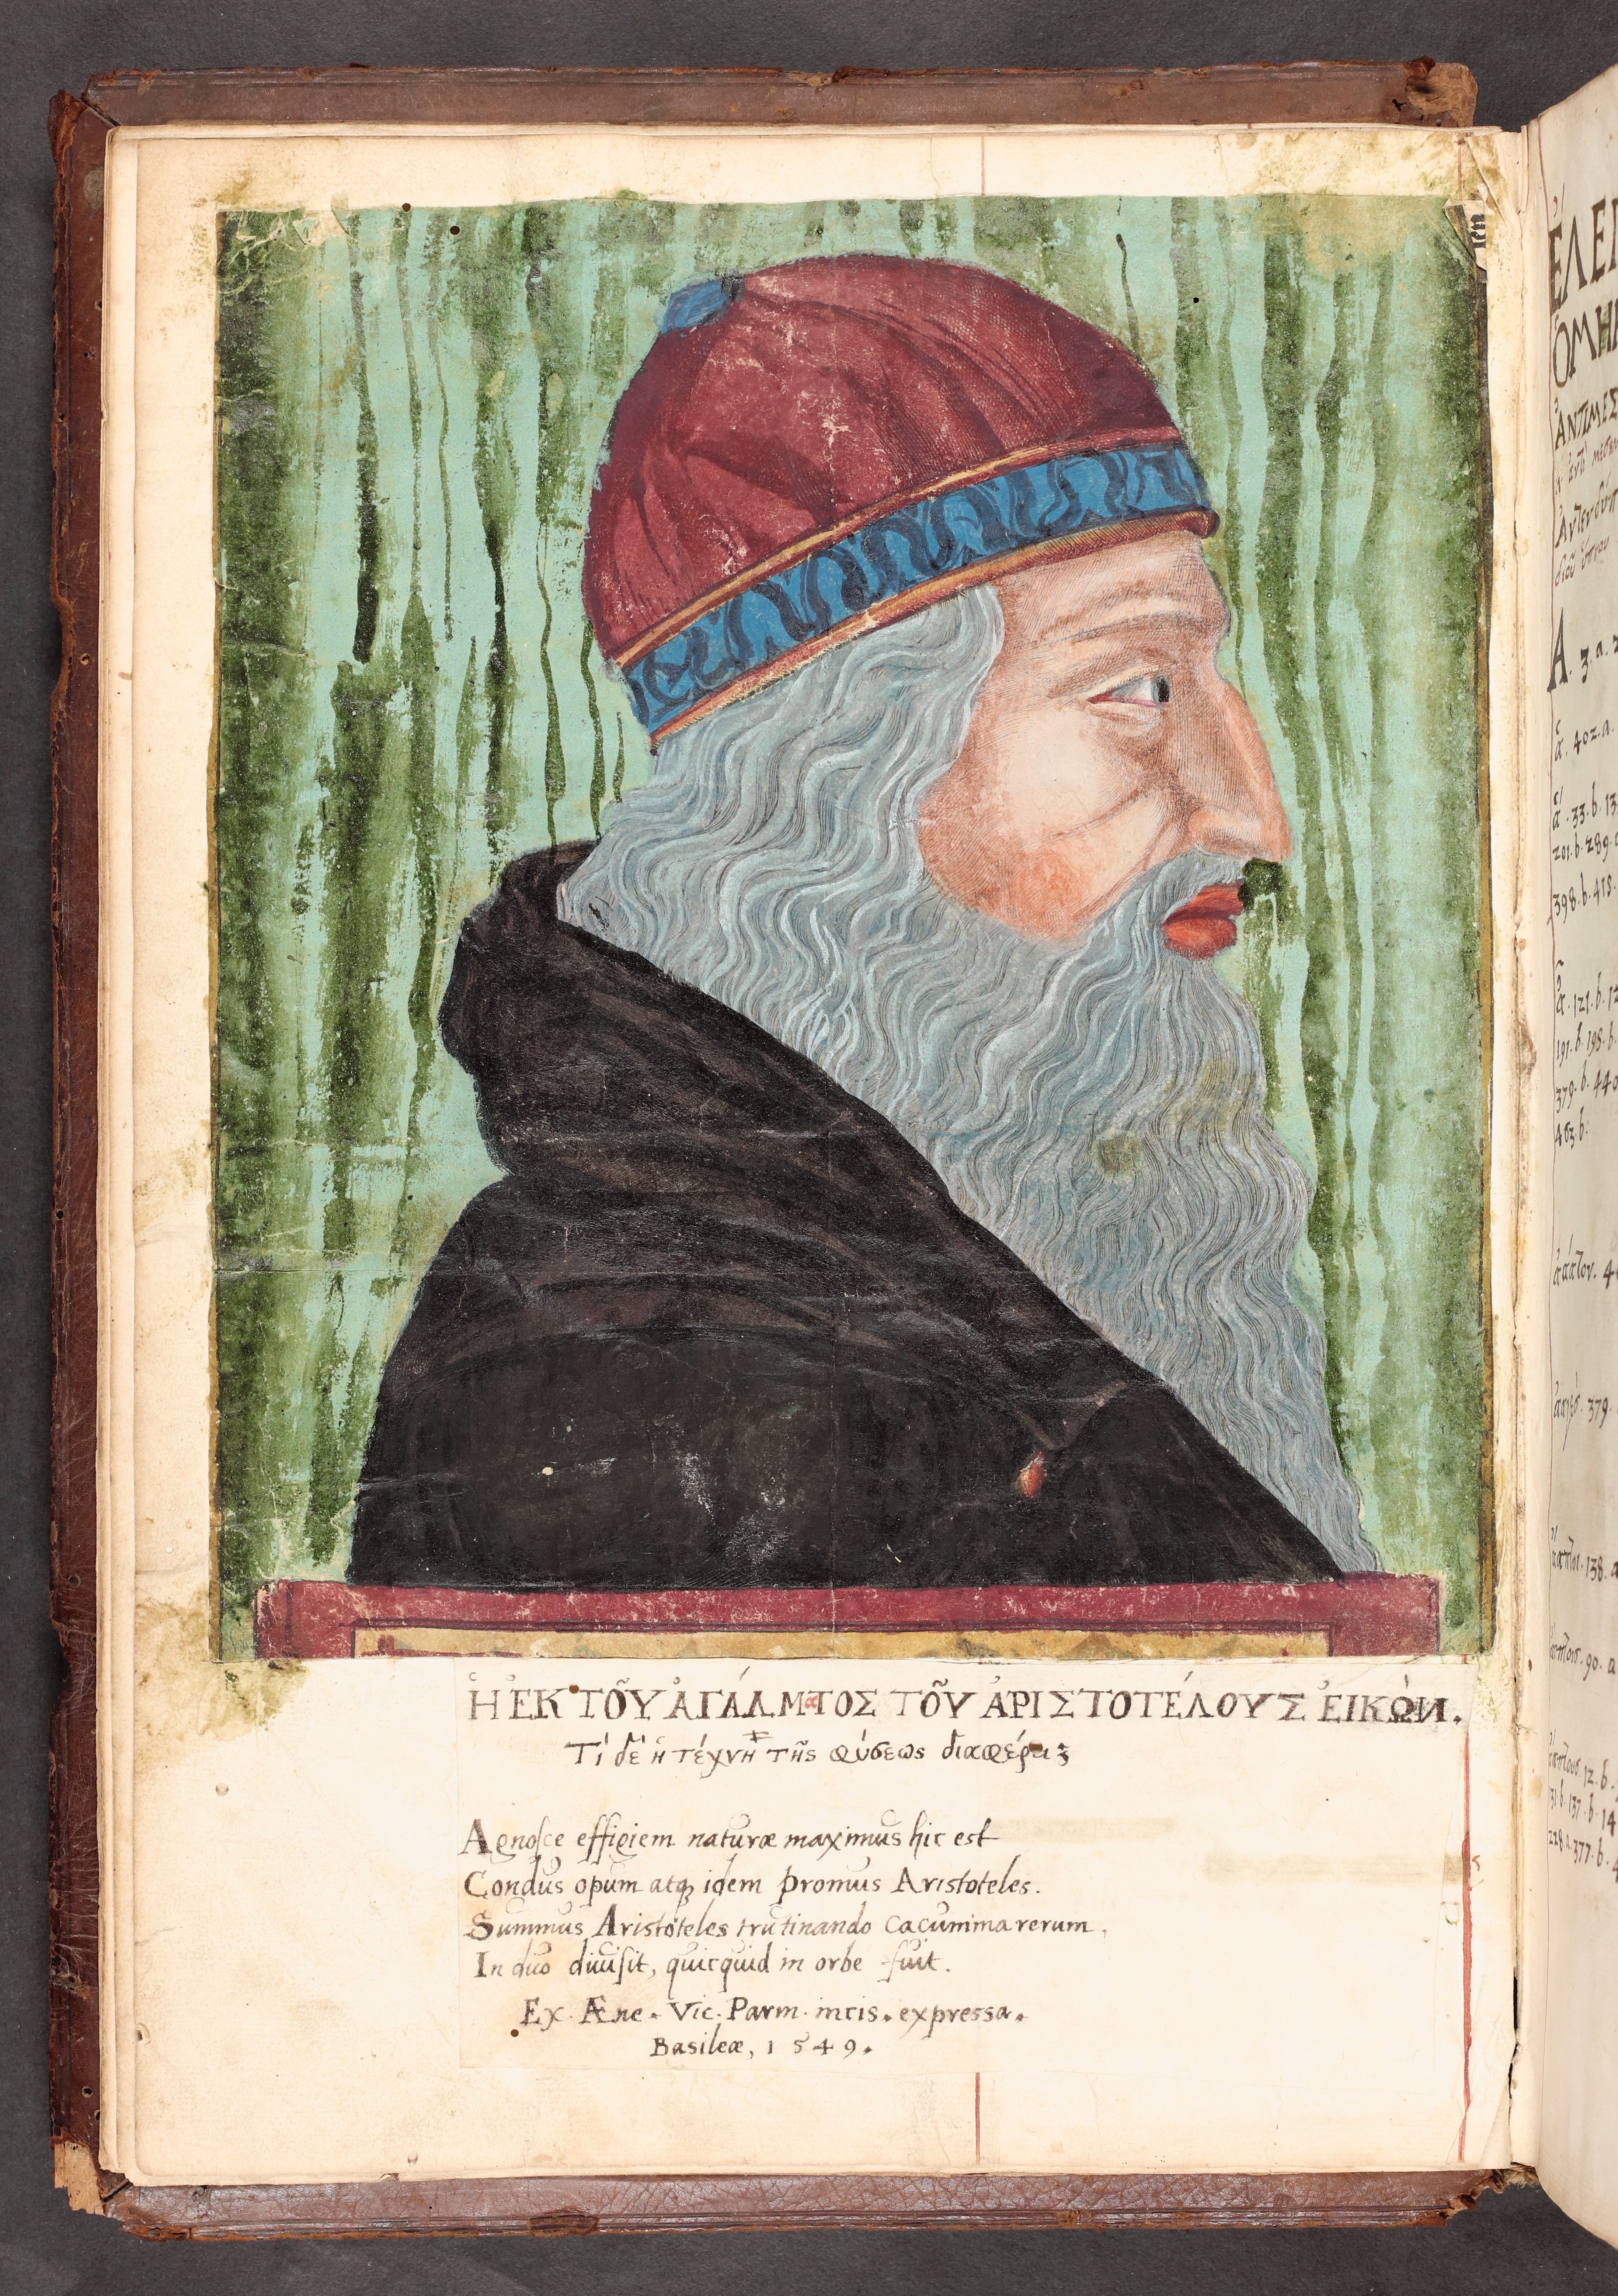 Ἡ ἘΚ ΤΟΥ͂ ἈΓΆΛΜαΤΟΣ ΤΟΥ͂ ἈΡΙΣΤΟΤΈΛΟΥΣ ἘΙΚῺΝ.
Τί δὲ ἡ τέχνη τῆς φύσεως διαφέρει;
Agnosce effigiem naturæ maximus hic est
Condus opum atq; idem promus Aristoteles.
Summus Aristoteles trutinando cacumina rerum,
In duo diuisit, quicquid in orbe fuit.
Ex. Æne. Vic. Parm. incis. expressa.
Basileæ, 1549.
ἈΝΤΙΜΕΣ
Α. 3. a. 2
402. a.
33. b. 13
201. b. 289.
398. b. 418.
121. b. 12
191. b. 195. b.
379. b. 440
463. b.
379.
138. a
90. a
12. b.
131. b. 137. b. 14
228. a. 377. b. 4